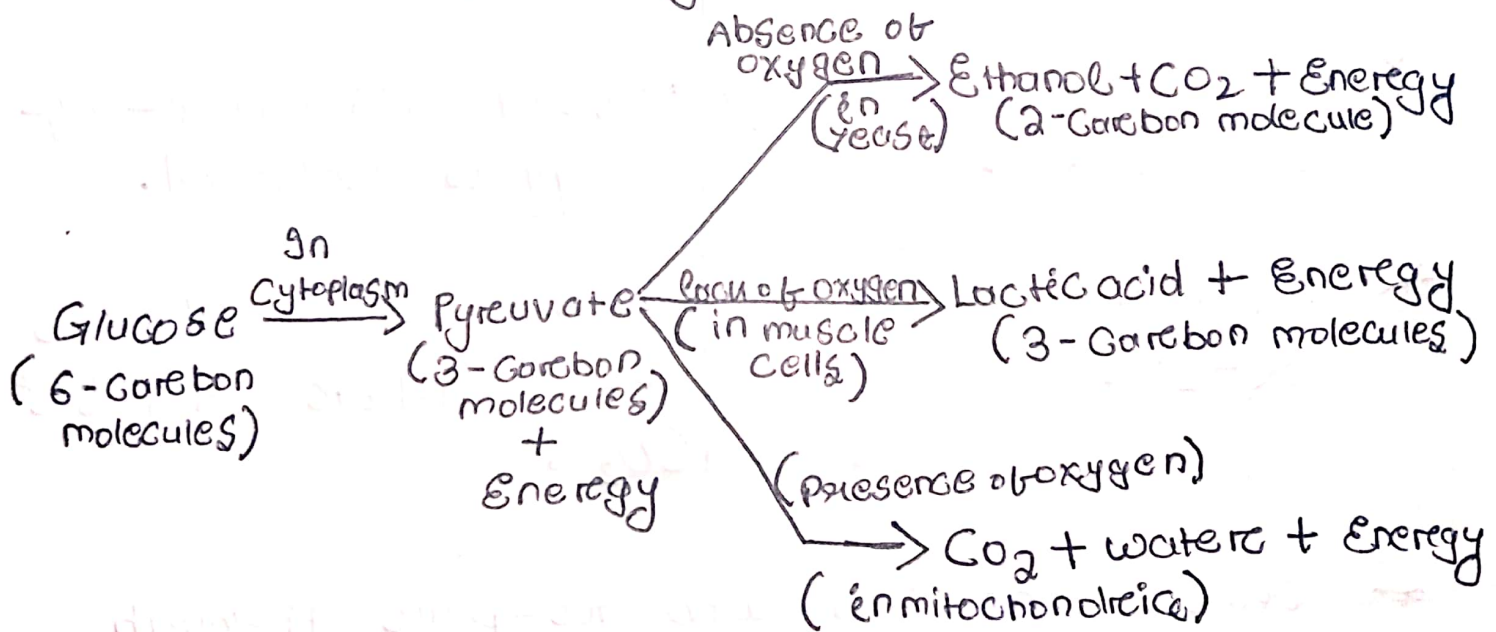 Absence of
oxygen
(in
yeast)
Ethanol + CO2 + Energy
(2-Carbon molecule)
In
Cytoplasm
Glucose
(6-Carbon
molecules)
Pyruvate
(3-Carbon
molecules)
+
Energy
lack of oxygen
(in muscle
cells)
Lactic acid + Energy
(3-Carbon molecules)
(presence of oxygen)
CO2 + water + Energy
(in mitochondria)